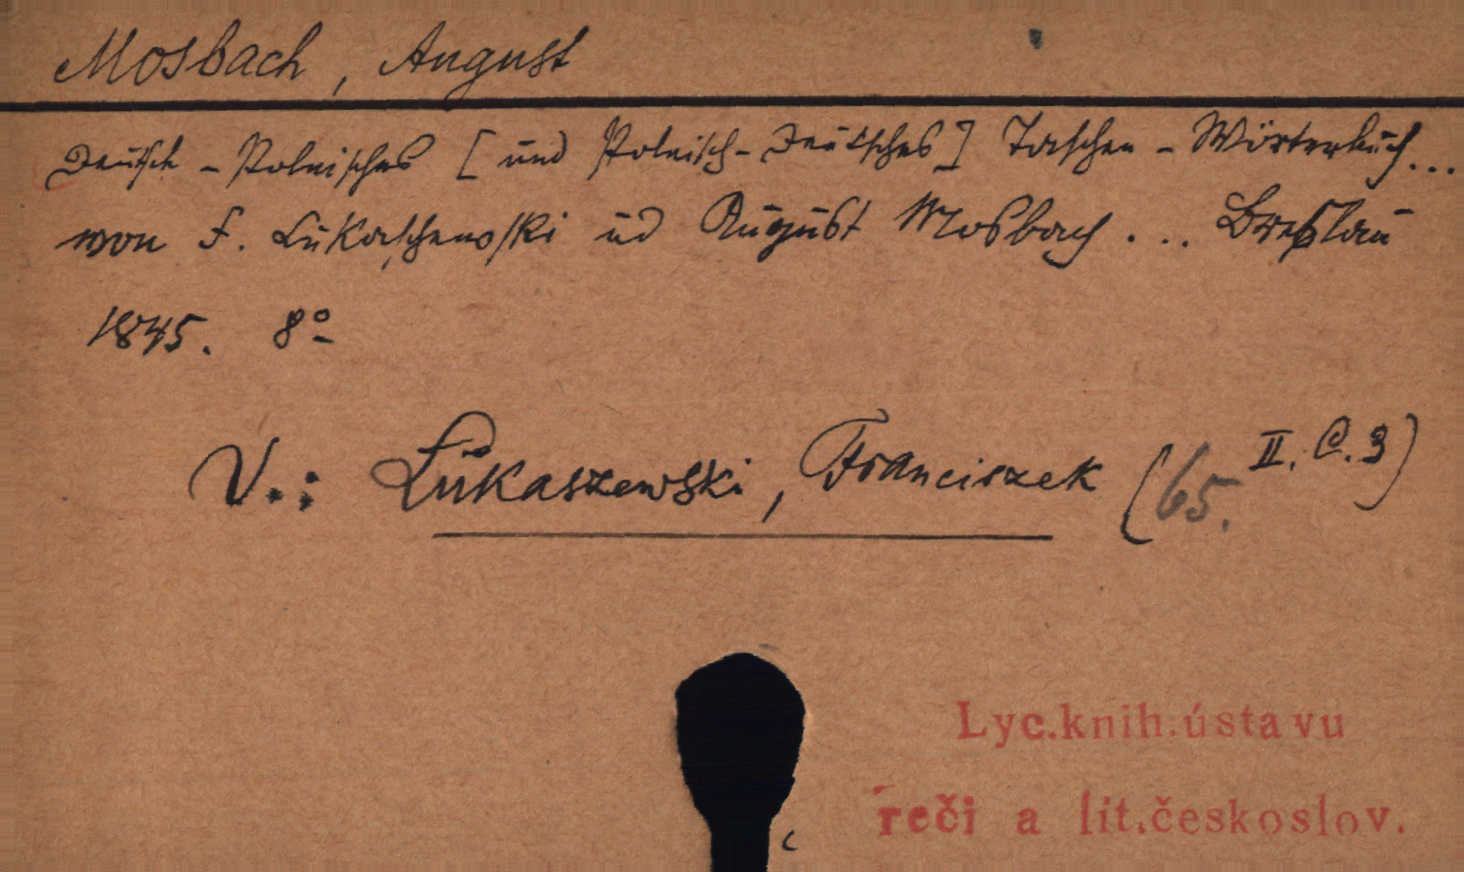 Mosbach, August
Deutsch-Polnisches [und Polnisch-Deutsches] Taschen-Wörterbuch...
von F. Lukaschewski ud August Mosbach... Breslau
1845. 8º
V.: Lukaszewski, Franciszek (65. II. C. 3)
Lyc.knih.ústavu
reči a lit.českoslov.